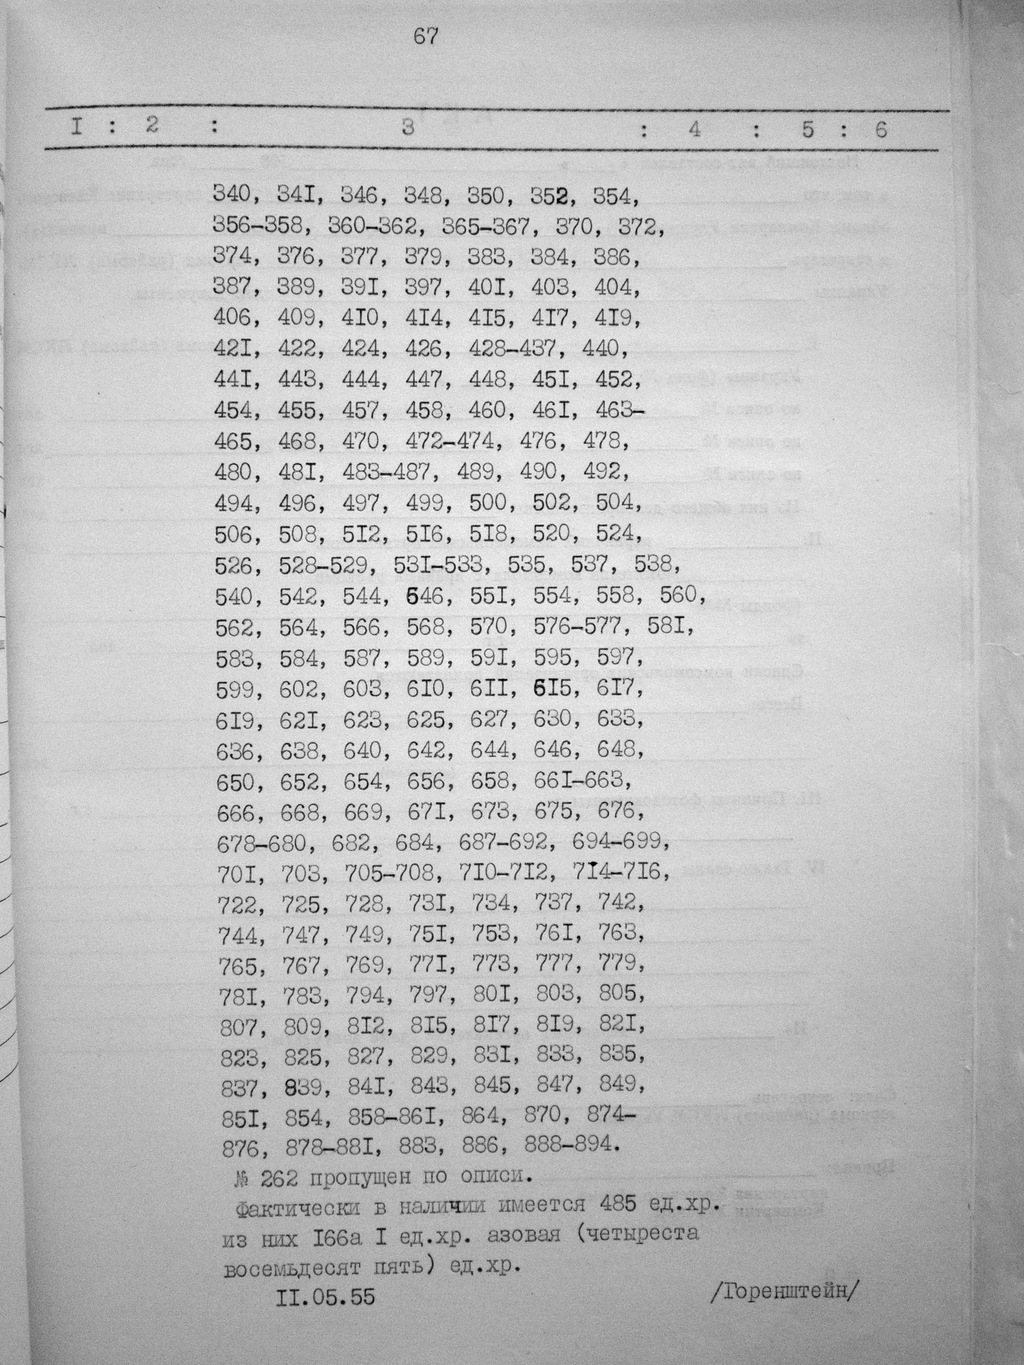 67
I : 2 : 3 : 4 : 5 : 6
340, 34I, 346, 348, 350, 352, 354,
356-358, 360-362, 365-367, 370, 372,
374, 376, 377, 379, 383, 384, 386,
387, 389, 39I, 397, 40I, 403, 404,
406, 409, 4I0, 4I4, 4I5, 4I7, 4I9,
42I, 422, 424, 426, 428-437, 440,
44I, 443, 444, 447, 448, 45I, 452,
454, 455, 457, 458, 460, 46I, 463-
465, 468, 470, 472-474, 476, 478,
480, 48I, 483-487, 489, 490, 492,
494, 496, 497, 499, 500, 502, 504,
506, 508, 5I2, 5I6, 5I8, 520, 524,
526, 528-529, 53I-533, 535, 537, 538,
540, 542, 544, 546, 55I, 554, 558, 560,
562, 564, 566, 568, 570, 576-577, 58I,
583, 584, 587, 589, 59I, 595, 597,
599, 602, 603, 6I0, 6II, 6I5, 6I7,
6I9, 62I, 623, 625, 627, 630, 633,
636, 638, 640, 642, 644, 646, 648,
650, 652, 654, 656, 658, 66I-663,
666, 668, 669, 67I, 673, 675, 676,
678-680, 682, 684, 687-692, 694-699,
70I, 703, 705-708, 7I0-7I2, 7I4-7I6,
722, 725, 728, 73I, 734, 737, 742,
744, 747, 749, 75I, 753, 76I, 763,
765, 767, 769, 77I, 773, 777, 779,
78I, 783, 794, 797, 80I, 803, 805,
807, 809, 8I2, 8I5, 8I7, 8I9, 82I,
823, 825, 827, 829, 83I, 833, 835,
837, 839, 84I, 843, 845, 847, 849,
85I, 854, 858-86I, 864, 870, 874-
876, 878-88I, 883, 886, 888-894.
№ 262 пропущен по описи.
Фактически в наличии имеется 485 ед.хр.
из них I66а I ед.хр. азовая (четыреста
восемьдесят пять) ед.хр.
II.05.55 /Горенштейн/